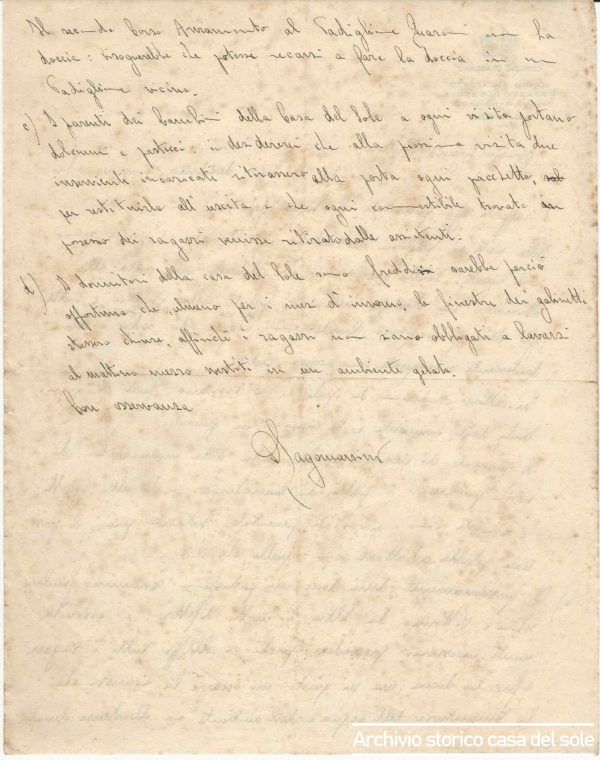 Il secondo Corso Avviamento al Padiglione Quaroni non ha
doccia: bisognerebbe che potesse recarsi a fare la doccia in un
Padiglione vicino.
c) I parenti dei bambini della Casa del Sole a ogni visita portano
dolciumi e pasticci: desidererei che alla prossima visita due
inservienti incaricati ritirassero alla porta ogni pacchetto,
per restituirlo all'uscita e che ogni commestibile trovato in
possesso dei ragazzi venisse ritirato dalle assistenti.
d) I dormitori della casa del Sole sono freddi sarebbe perciò
opportuno che, almeno per i mesi d'inverno, le finestre dei gabinetti
stessero chiuse, affinchè i ragazzi non siano obbligati a lavarsi
al mattino mezzo vestiti in un ambiente gelato.
Con osservanza
Dagomarsini
Archivio storico casa del sole